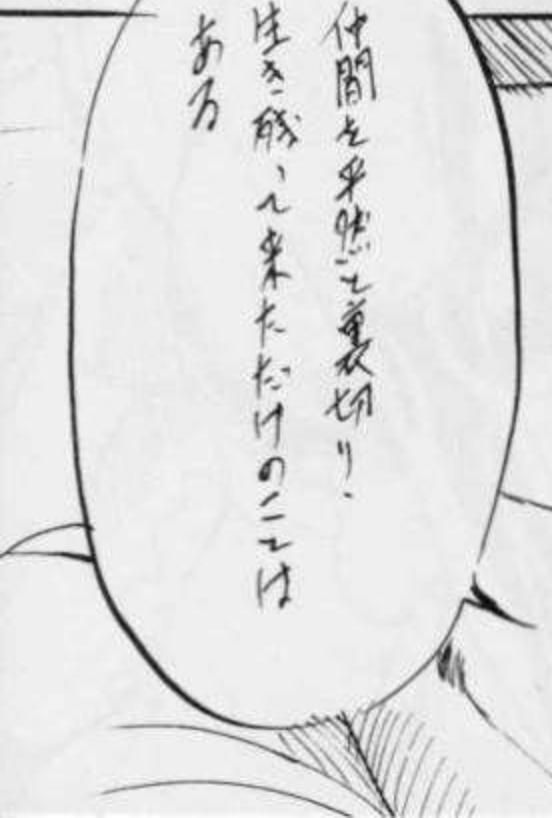 仲間を平然と裏切り、
生き残って来ただけのことは
ある